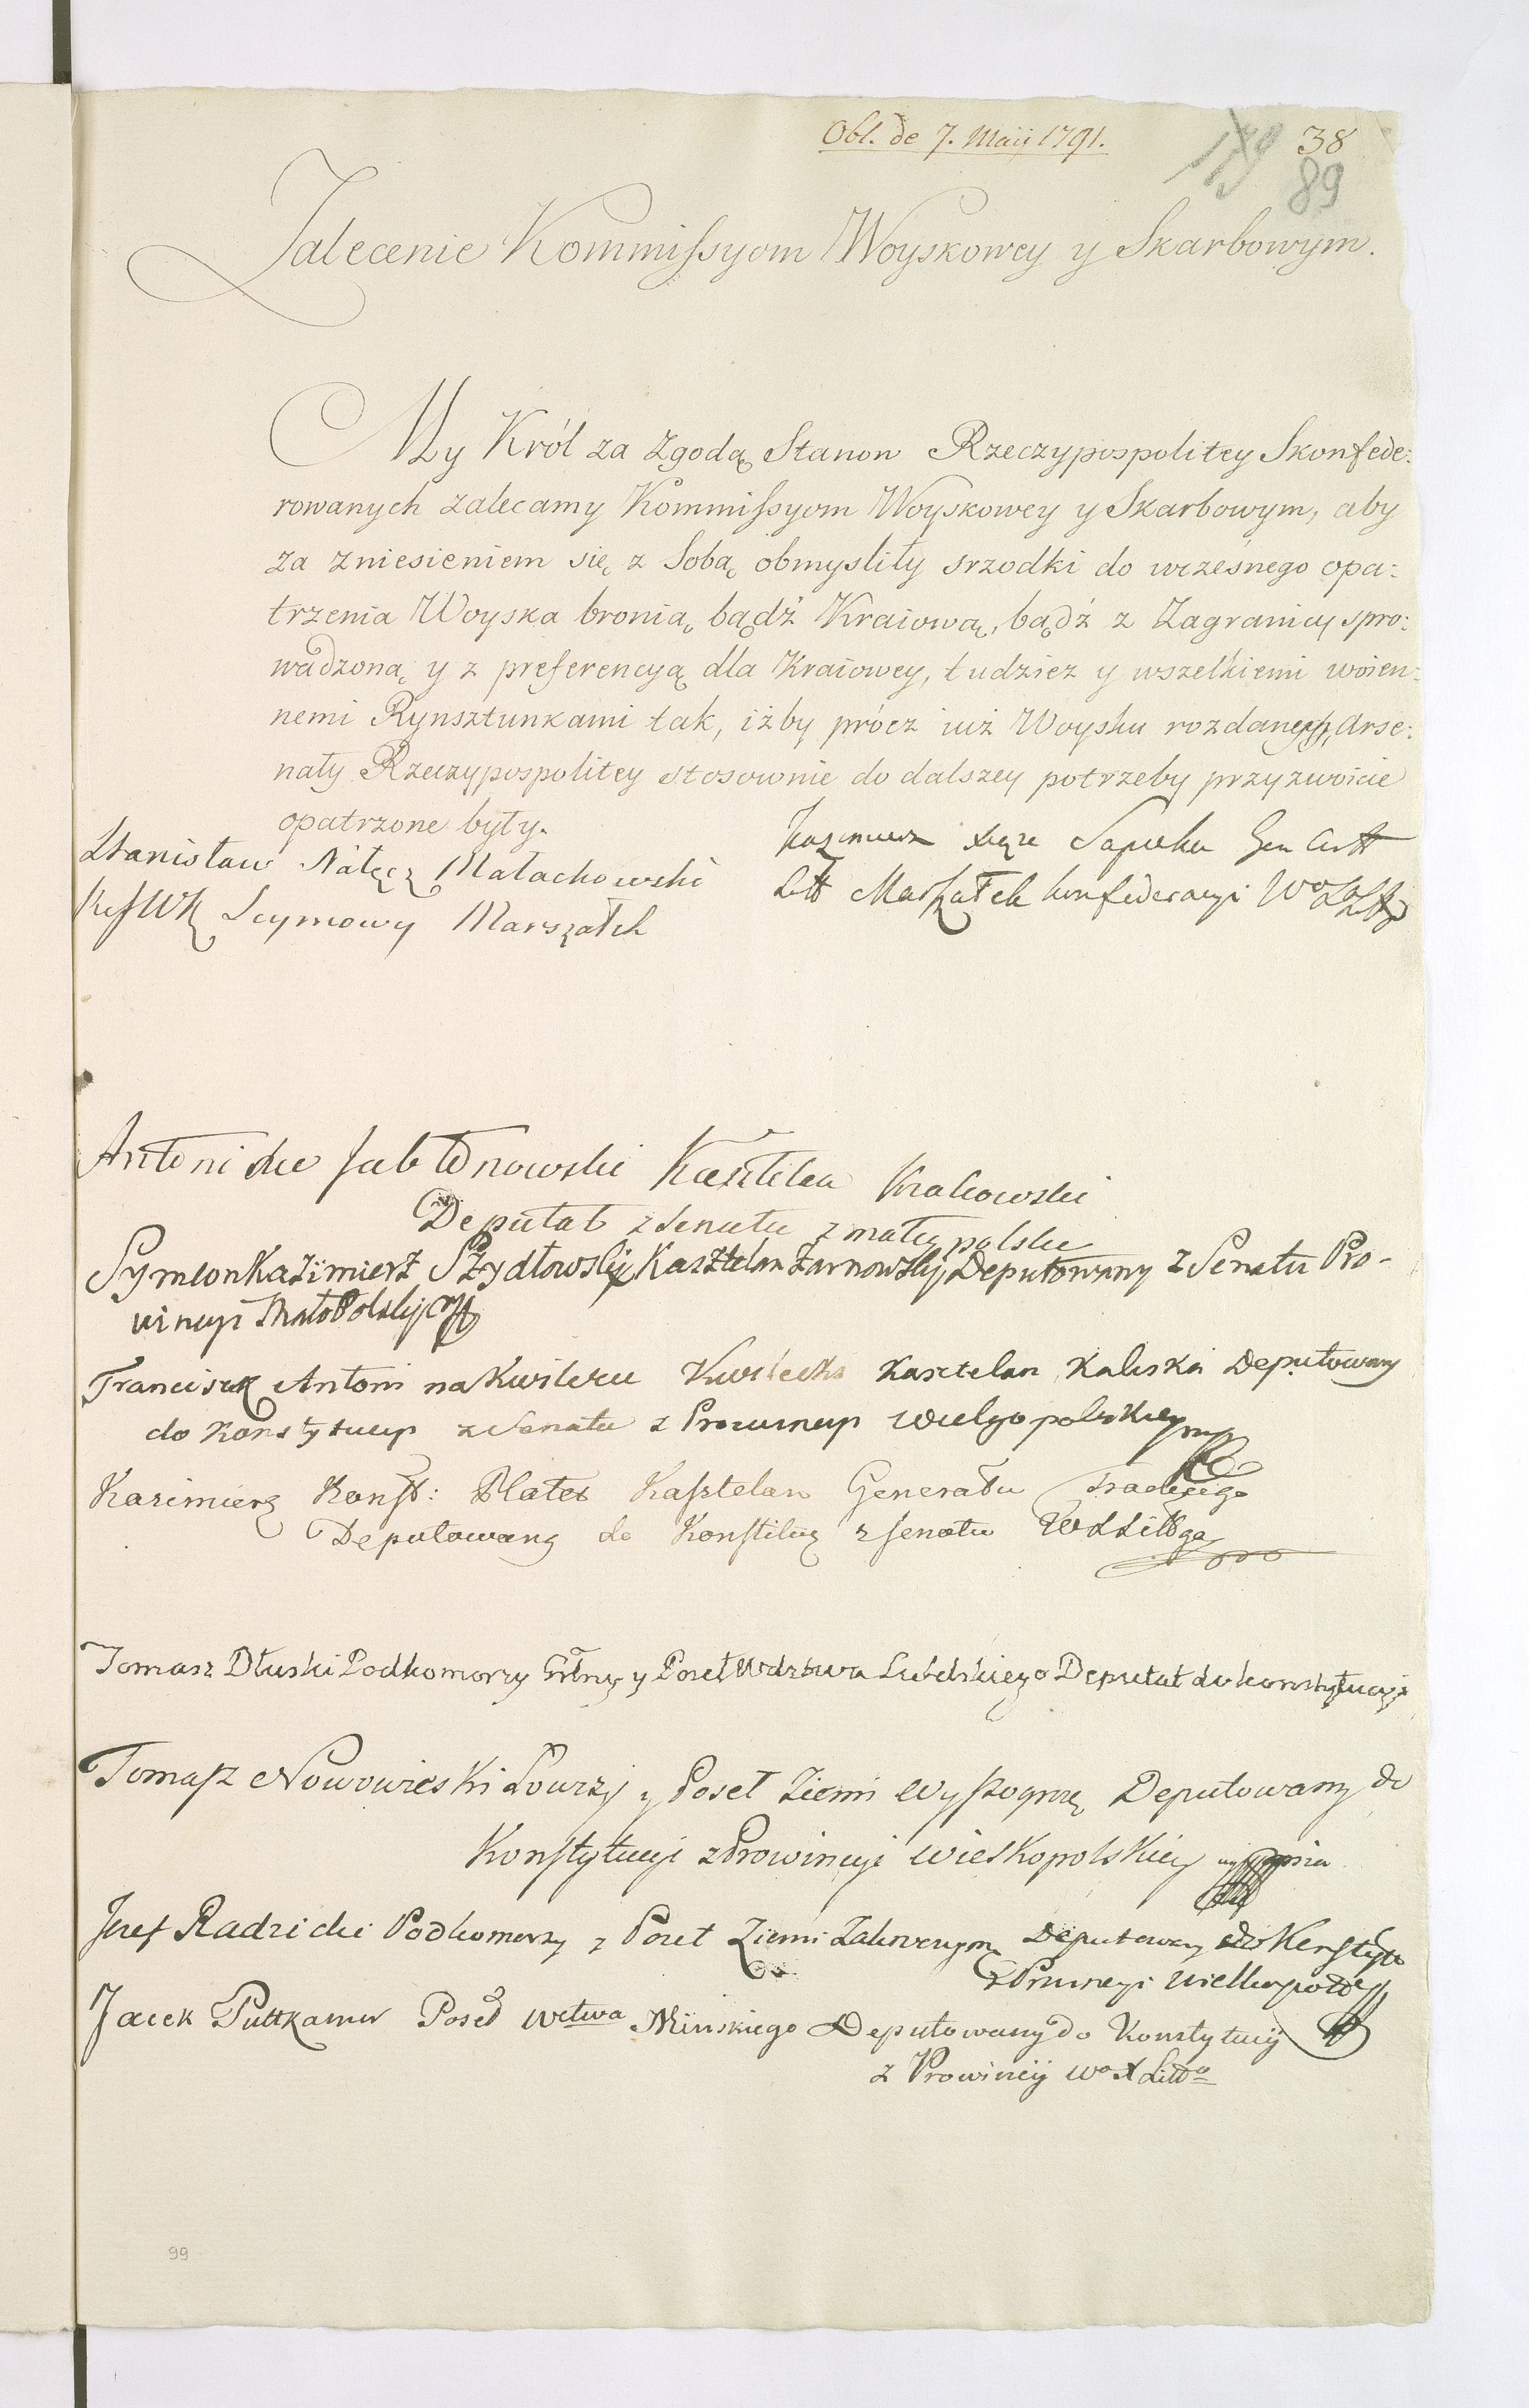 Obl. de 7. Maij 1791.
38
89
Zalecenie Kommissyom Woyskowey y Skarbowym.
My Król za Zgodą Stanow Rzeczypospolitey Skonfede:
rowanych zalecamy Kommissyom Woyskowey y Skarbowym, aby
za zniesieniem się z Sobą obmysliły srzodki do wczesnego opa:
trzenia Woyska bronią, bądź Kraiową, bądź z Zagranicy spro:
wadzoną y z preferencyą dla Kraiowey, tudziez y wszelkiemi woien:
nemi Rynsztunkami tak, iżby prócz iuż Woysku rozdanych, Arse:
nały Rzeczypospolitey stosownie do dalszey potrzeby przyzwoicie
opatrzone były.
Stanisław Nałęcz Małachowski
Seymowy Marszałek
Kazimierz Xiąże Sapieha Gen Artt
Litt Marszałek konfederacyi
Antoni Xże Jabłonowski Kasztelan Krakowski
Deputat z Senatu z małey polski
Symeon Kazimierz Szydłowski Kasztelan Żarnowski Deputowany z Senatu Pro-
wincyi MałoPolskij
Franciszek Antoni na Kwilczu Kwilecki Kasztelan Kaliski Deputowany
do Konstytucyi z Senatu z Prowincyi Wielgopolskiey
Kazimierz Konst: Plater Kasztelan Generału Trockiego
Deputowany do Konstituc z Senatu WXLittgo
Tomasz Dłuski Podkomorzy y Poseł Wdztwa Lubelskiego Deputat do konstytucyi
Tomasz Nowowieski Łowczy y Poseł Ziemi Wyszogrz Deputowany do
Konstytucyi z Prowincyi wielkopolskiey
Jozef Radzicki Podkomorzy y Poseł Ziemi Zakroczym Deputowany do Konstytu
z Prowincyi wielkopol
Jacek Puttkamer Poseł Wctwa Mińskiego Deputowany do Konstytucij
z Prowincij Wo X Litto
99